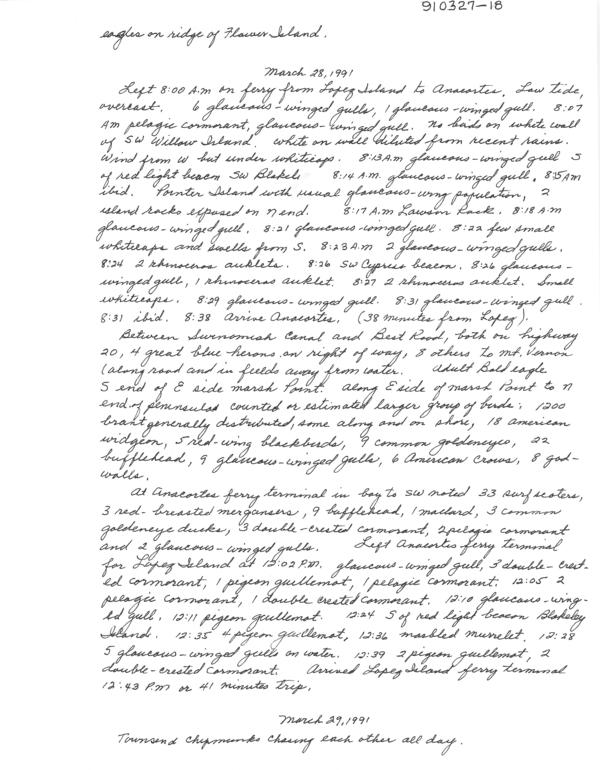 910327-18
eagles on ridge of Flower Island.
March 28, 1991
Left 8:00 A.m on ferry from Lopez Island to Anacortes. Low tide,
overcast. 6 glaucous-winged gulls, 1 glaucous-winged gull. 8:07
Am pelagic cormorant, glaucous-winged gull. No birds on white wall
of SW Willow Island. White on wall diluted from recent rains.
Wind from W but under whitecaps. 8:13 A.m glaucous-winged gull S
of red light beacon SW Blakely 8:14 A.m. glaucous-winged gull, 8:15 AM
ibid. Pointer Island with usual glaucous-wing population, 2
island rocks exposed on N end. 8:17 A.m Lawson Rock. 8:18 A.m
glaucous-winged gull. 8:21 glaucous-winged gull. 8:22 few small
whitecaps and swells from S. 8:23 A.m 2 glaucous-winged gulls.
8:24 2 rhinoceros auklets. 8:26 SW Cypress beacon. 8:26 glaucous-
winged gull, 1 rhinoceros auklet. 8:27 2 rhinoceros auklet. Small
whitecaps. 8:29 glaucous-winged gull. 8:31 glaucous-winged gull.
8:31 ibid. 8:38 arrive Anacortes, (38 minutes from Lopez).
Between Swinomish Canal and Best Road, both on highway
20, 4 great blue herons on right of way, 8 others to Mt. Vernon
(along road and in fields away from water. Adult Bald eagle
S end of E side marsh Point. Along E side of marsh Point to N
end of peninsula counted or estimated larger group of birds: 1200
brant generally distributed, some along and on shore, 18 american
widgeon, 5 red-wing blackbirds, 9 common goldeneye, 22
bufflehead, 9 glaucous-winged gulls, 6 American crows, 8 gad-
walls.
At Anacortes ferry terminal in bay to SW noted 33 surf scoters,
3 red-breasted mergansers, 9 bufflehead, 1 mallard, 3 common
goldeneye ducks, 3 double-crested cormorant, 2 pelagic cormorant
and 2 glaucous-winged gulls. Left Anacortes ferry terminal
for Lopez Island at 12:02 P.M. glaucous-winged gull, 3 double-crest-
ed cormorant, 1 pigeon guillemot, 1 pelagic cormorant. 12:05 2
pelagic cormorant, 1 double crested cormorant. 12:10 glaucous-wing-
ed gull. 12:11 pigeon guillemot. 12:24 S of red light beacon Blakeley
Island. 12:35 4 pigeon guillemot, 12:36 marbled murrelet. 12:38
5 glaucous-winged gulls on water. 12:39 2 pigeon guillemot, 2
double-crested cormorant. Arrived Lopez Island ferry terminal
12:43 P.m or 41 minutes trip.
March 29, 1991
Townsend Chipmunks chasing each other all day.